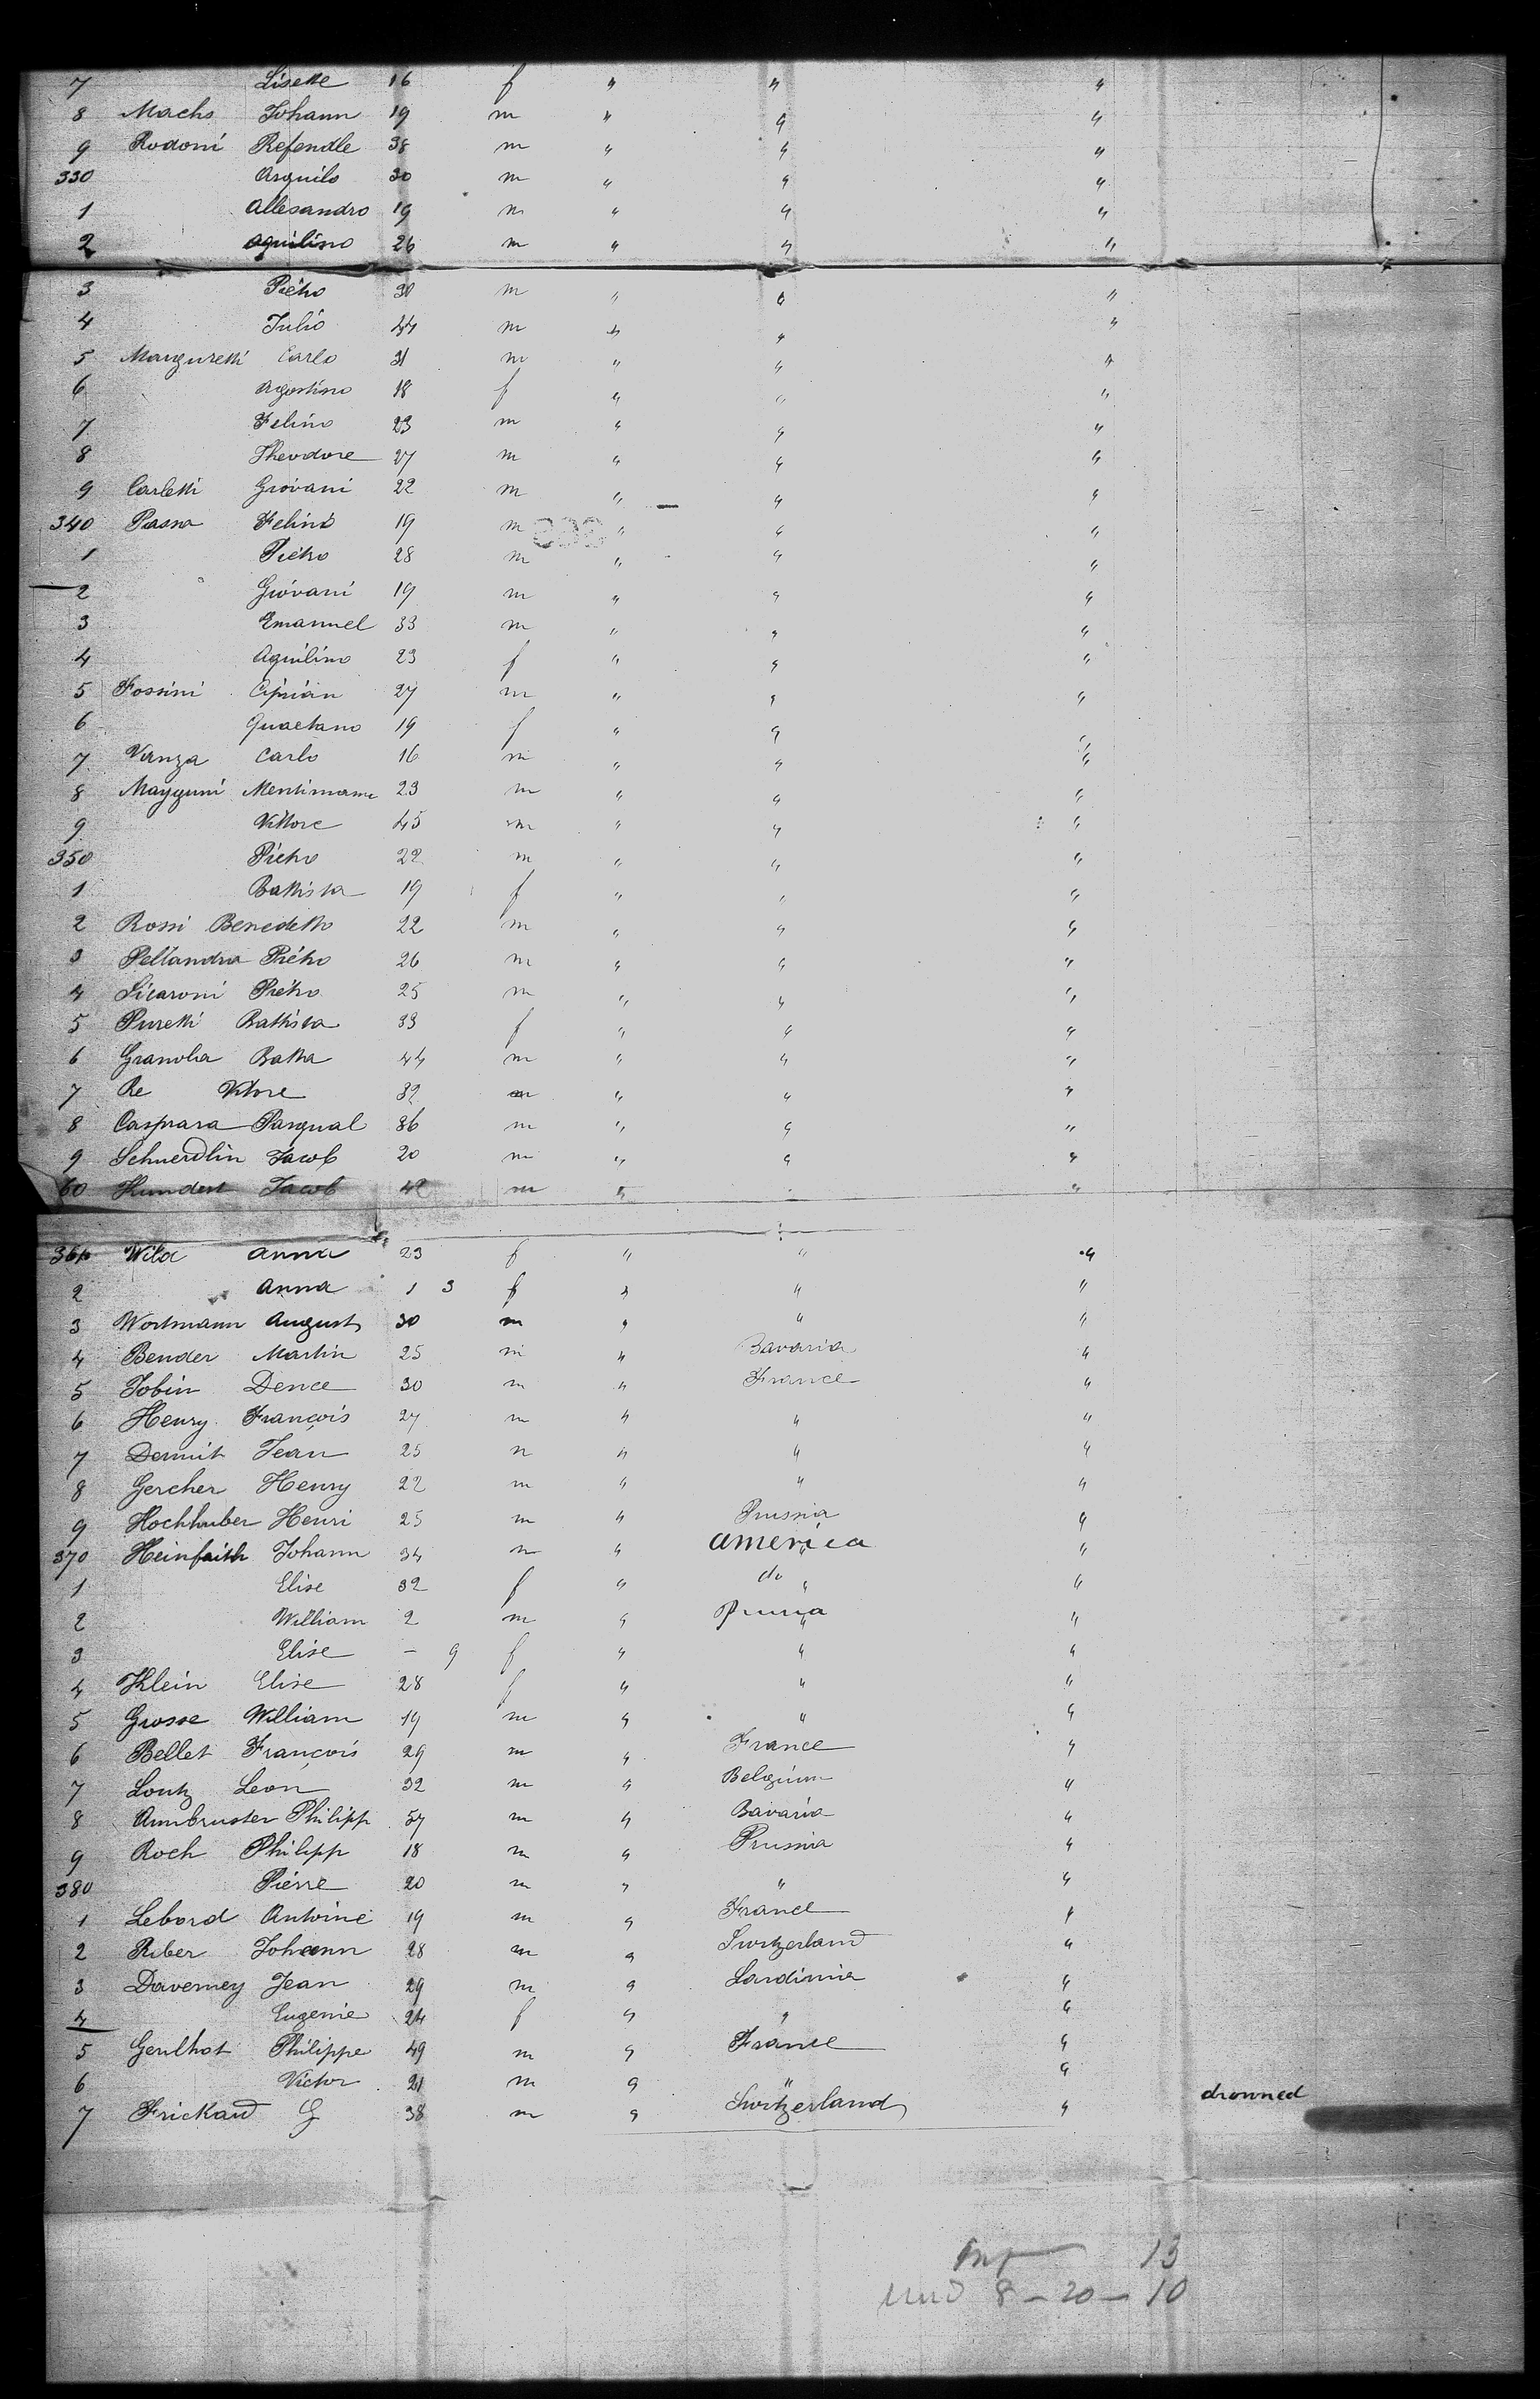 7 Lisette 16 f " " "
8 Machs Johann 19 m " " "
9 Rodoni Refendle 38 m " " "
330 Arquilo 30 m " " "
1 Allesandro 19 m " " "
2 Aquilino 26 m " " "
3 Pietro 30 m " " "
4 Julio 44 m " " "
5 Marguretti Carlo 31 m " " "
6 Agostino 18 f " " "
7 Felino 23 m " " "
8 Theodore 27 m " " "
9 Carletti Giovani 22 m " " "
340 Passa Felino 19 m " " "
1 Pietro 28 m " " "
2 Giovani 19 m " " "
3 Emanuel 33 m " " "
4 Aquilino 23 f " " "
5 Fossini Ciprian 27 m " " "
6 Quaetano 19 f " " "
7 Vanza Carlo 16 m " " "
8 Mayguni 23 m " " "
9 Vittore 45 m " " "
350 Pietro 22 m " " "
1 Battista 19 f " " "
2 Rossi Benedetto 22 m " " "
3 Pellandra Pietro 26 m " " "
4 Sicaroni Pietro 25 m " " "
5 Puretti Battista 33 f " " "
6 Granolia Batta 44 m " " "
7 Re Vitore 32 m " " "
8 Caspara Pasqual 36 m " " "
9 Schnerdlin Jacob 20 m " " "
60 Kundert Jacob 42 m " " "
361 Wild Anna 23 f " " "
2 Anna 1 3 f " " "
3 Wortmann August 30 m " " "
4 Bender Martin 25 m " Bavaria "
5 Jobin Dence 30 m " France "
6 Henry François 27 m " " "
7 Dermit Jean 25 m " " "
8 Gercher Henry 22 m " " "
9 Hochhuber Henri 25 m " Prussia "
370 Heinfaith Johann 34 m " America "
1 Elise 32 f " do "
2 William 2 m " Prussia "
3 Elise - 9 f " " "
4 Klein Elise 28 f " " "
5 Grosse William 19 m " " "
6 Bellet François 29 m " France "
7 Loutz Leon 32 m " Belgium "
8 Armbruster Philipp 57 m " Bavaria "
9 Roch Philipp 18 m " Prussia "
380 Pierre 20 m " " "
1 Lebord Antoine 19 m " France "
2 Riber Johann 28 m " Switzerland "
3 Daverney Jean 29 m " Sardinia "
4 Eugenie 24 f " " "
5 Geulhot Philippe 49 m " France "
6 Victor 21 m " " "
7 Frickard G 38 m " Switzerland " drowned
13
8 - 20 - 10